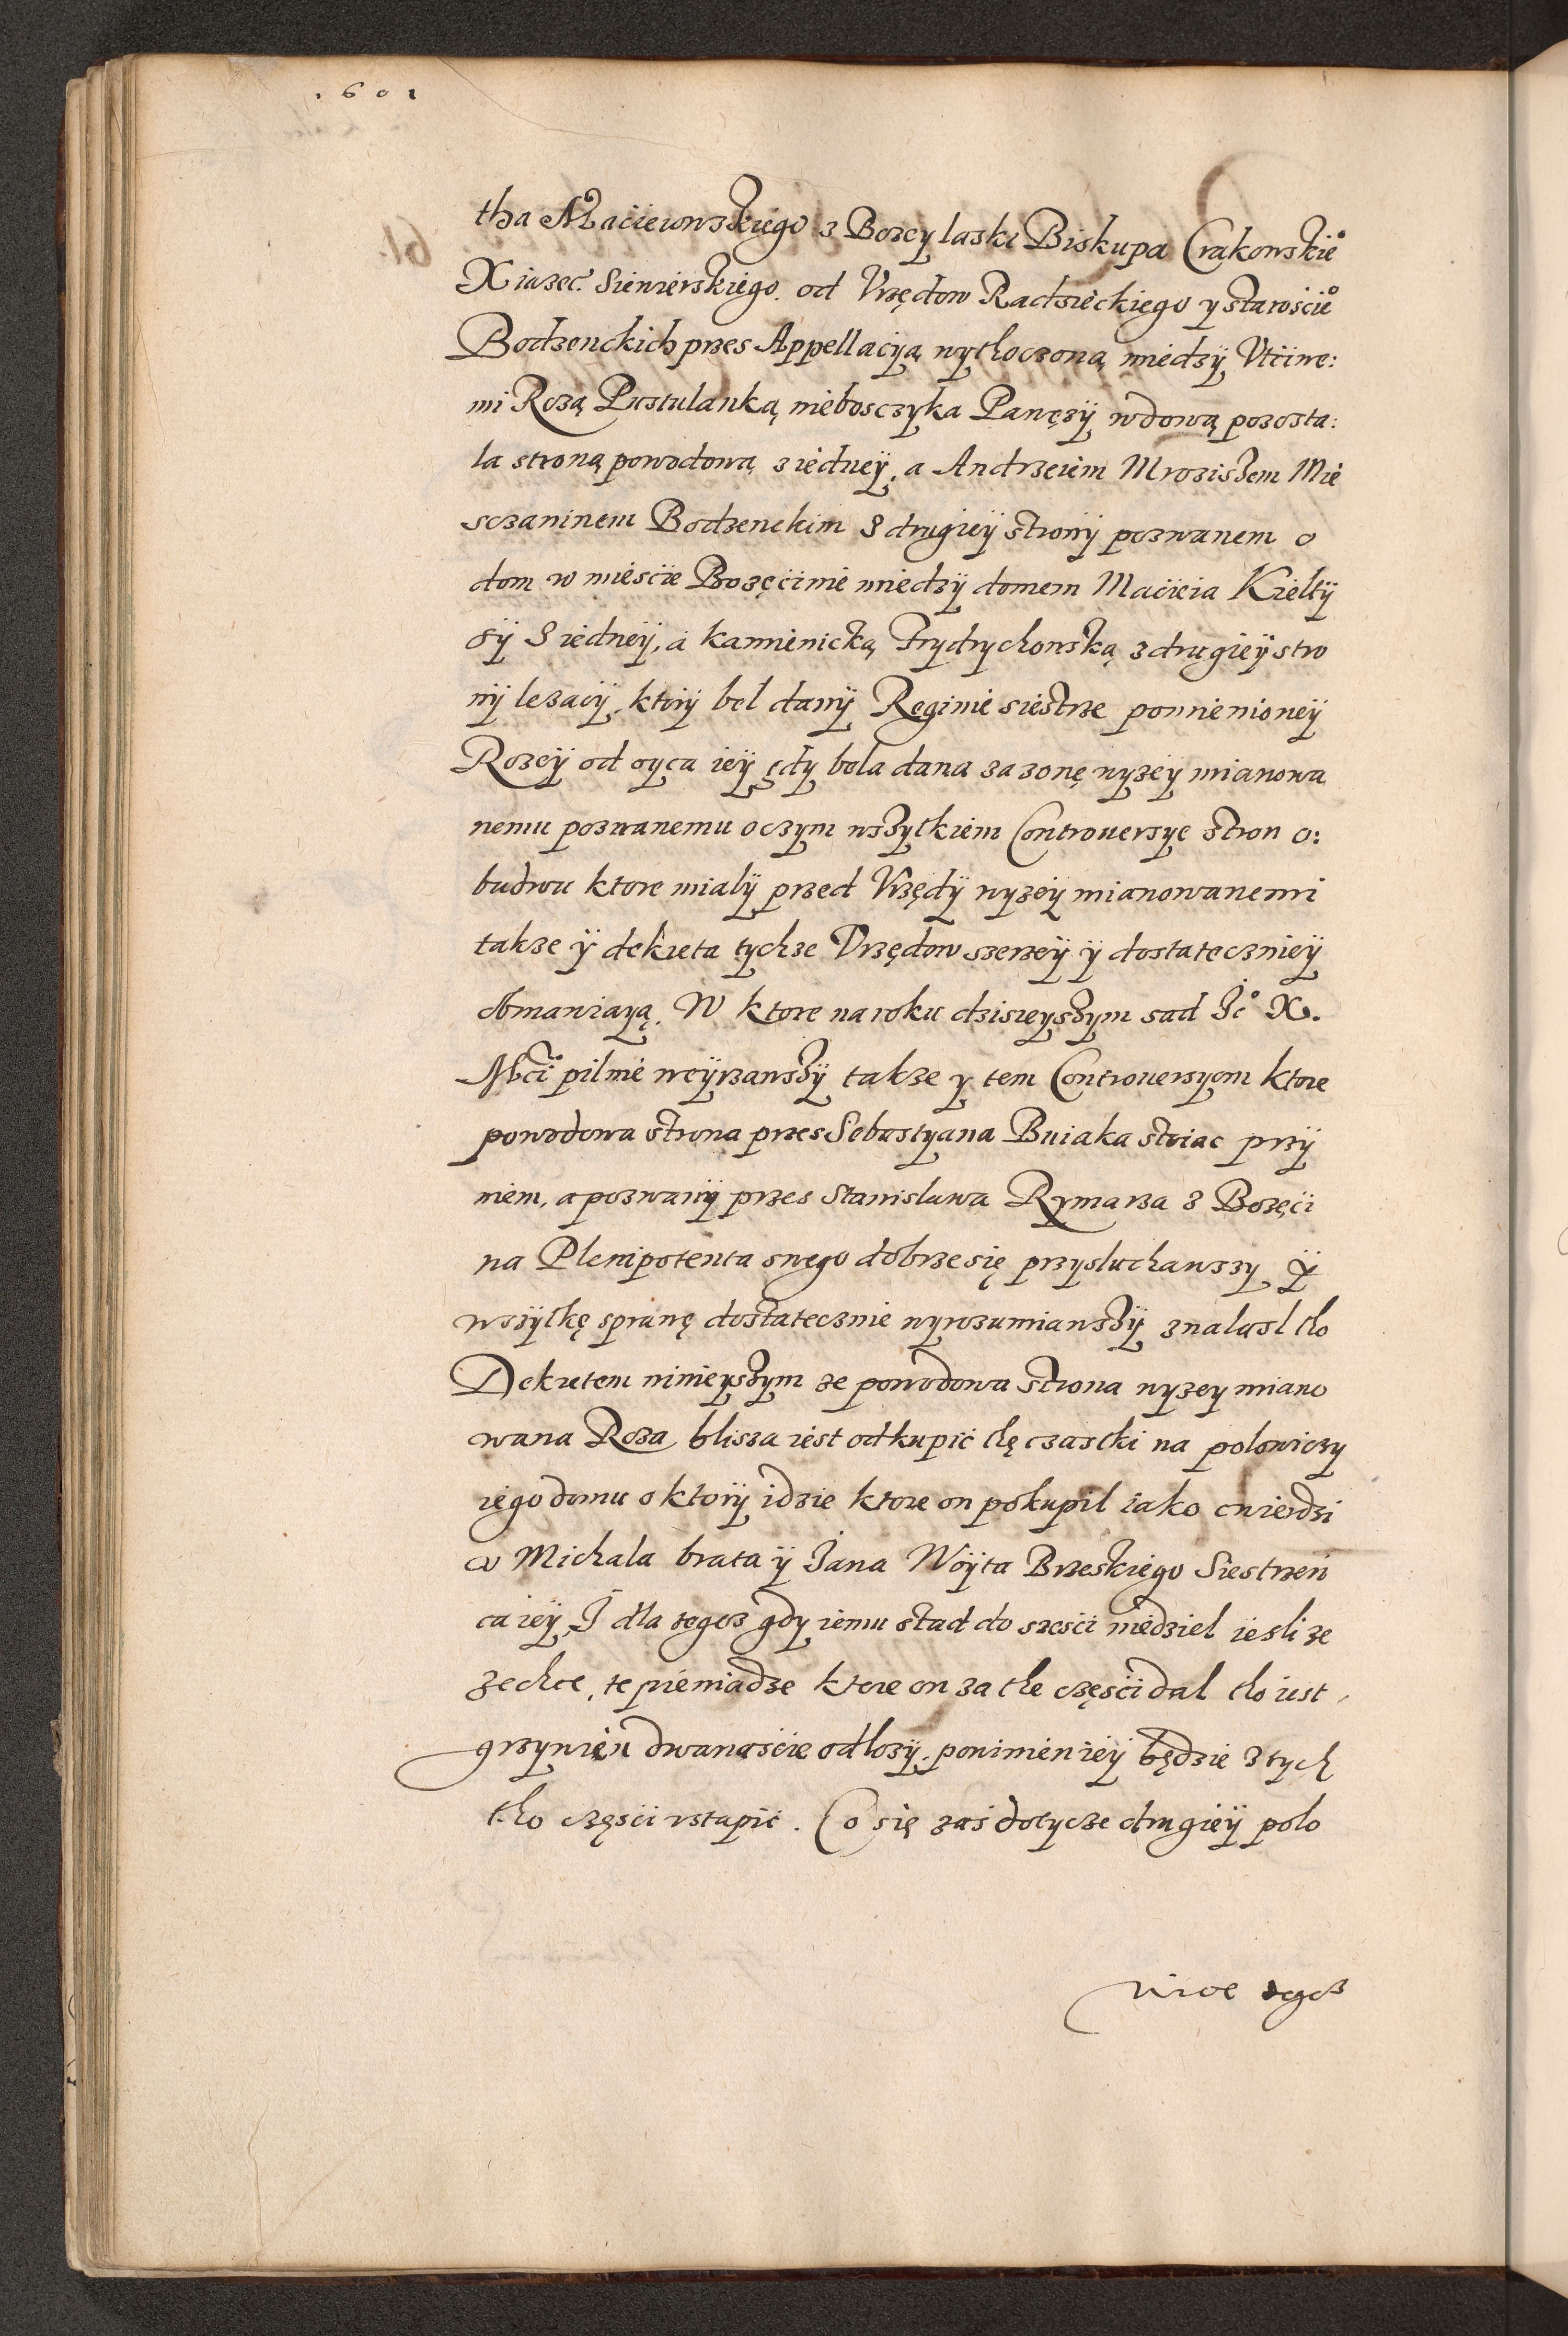 1601
tha Maćieiowskiego z Bozey laski Biskupa Crakowskie°
Xiazec. Siewierskiego. od Vrzędow Radzieckiego y starośćie°
Bodzenckich przes Appellaciyą wytłoczoną miedzÿ Vtćiwe:
mi Rozą Pustulanką nieboszczyka Panęzÿ wdową pozosta:
la stroną powodową z iednëÿ, a Andrzeiem Mroziszem Mie
sczaninem Bodzenckim z drugiëÿ stronÿ pozwanem o
dom w mieśćie Bozęćinie miedzÿ domem Maćieia Kiełbÿ
sÿ z iednëÿ, a kamienicką Frydrychowską z drugiëÿ stro
nÿ lezacÿ, ktorÿ bel danÿ Reginie siestrze pomienionëÿ
Rozëÿ od oyca iëÿ gdy bela dana za zonę wyzëÿ mianowa
nemu pozwanemu o czym wszytkiem Controuersye stron o:
budwu ktore mialÿ przed Vrzędÿ wyzëÿ mianowanemi
takze ÿ dekreta tychze Vrzędow szerzëÿ ÿ dostatecznieÿ
obmawiayą. W ktore na roku dzisieyszym sad Je° X.
Mći pilnie weÿrzawszÿ takze y tem Controuersyom ktore
powodowa strona przes Sebastyana Buiaka stoiac przÿ
niem, a pozwanÿ przes Stanislawa Rymarza z Bozęći
na Plenipotenta swego dobrze się przysluchawszy ÿ
wszÿtkę sprawę dostatecznie wyrozumiawszÿ znalazl tho
Dekretem ninieyszym ze powodowa strona wyzey miano
wana Roza blisza iest odkupić thę czastki na polowiczy
iego domu o ktorÿ idzie ktore on pokupil iako cwierdzi
u Michala brata ÿ Jana Woÿta Brzeskiego Siestrzeń
ca iëÿ, J dla tegoz gdy iemu stad do szesći niedziel iesli ze
zechce, te pieniadze ktore on za the częsći dal tho iest
grzywien dwanaśćie odłozÿ, powinien iëÿ będzie z tych
tho częsći vstapić. Co się zaś dotycze drugiëÿ polo
wice tegoz